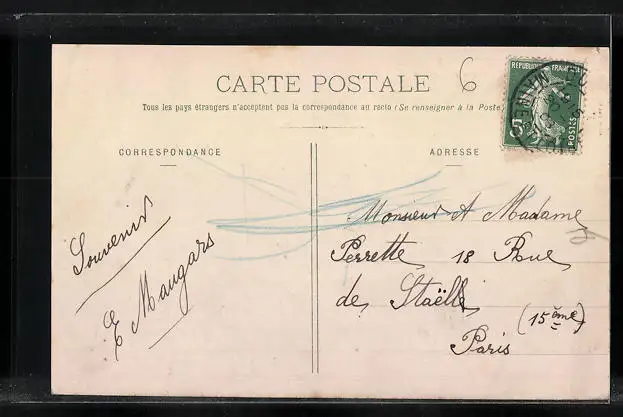 CARTE POSTALE
6
Tous les pays étrangers n'acceptent pas la correspondance au recto (Se renseigner à la Poste)
REPUBLIQUE FRANÇAISE
5c
POSTES
CORRESPONDANCE
Souvenir
E Maugars
ADRESSE
Monsieur et Madame
Perrette 18 Rue
de Staëlle
(15ème)
Paris